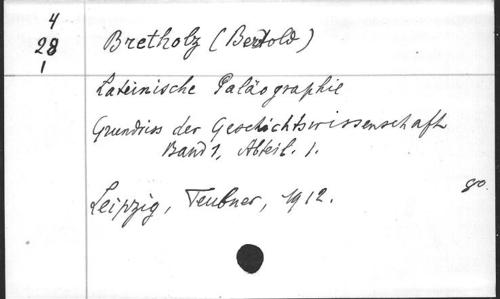 4
28
1
Bretholz (Bertold)
Lateinische Paläographie
Grundriss der Geschichtswissenschaft
Band 1, Abteil. 1.
Leipzig, Teubner, 1912.
8o.